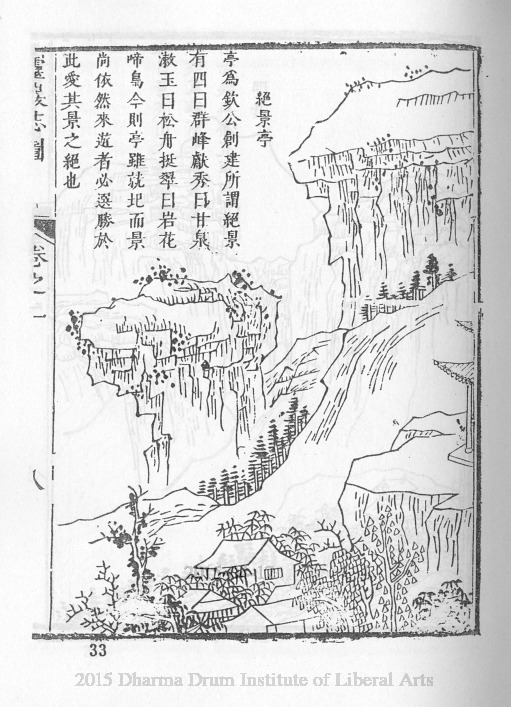 絕景亭
亭爲欽公創建所謂絕景
有四曰群峰獻秀曰甘泉
漱玉曰松舟挺翠曰岩花
啼鳥今則亭雖就圮而景
尚依然來遊者必選勝於
此愛其景之絕也
志圖
卷之一
八
33
2015 Dharma Drum Institute of Liberal Arts